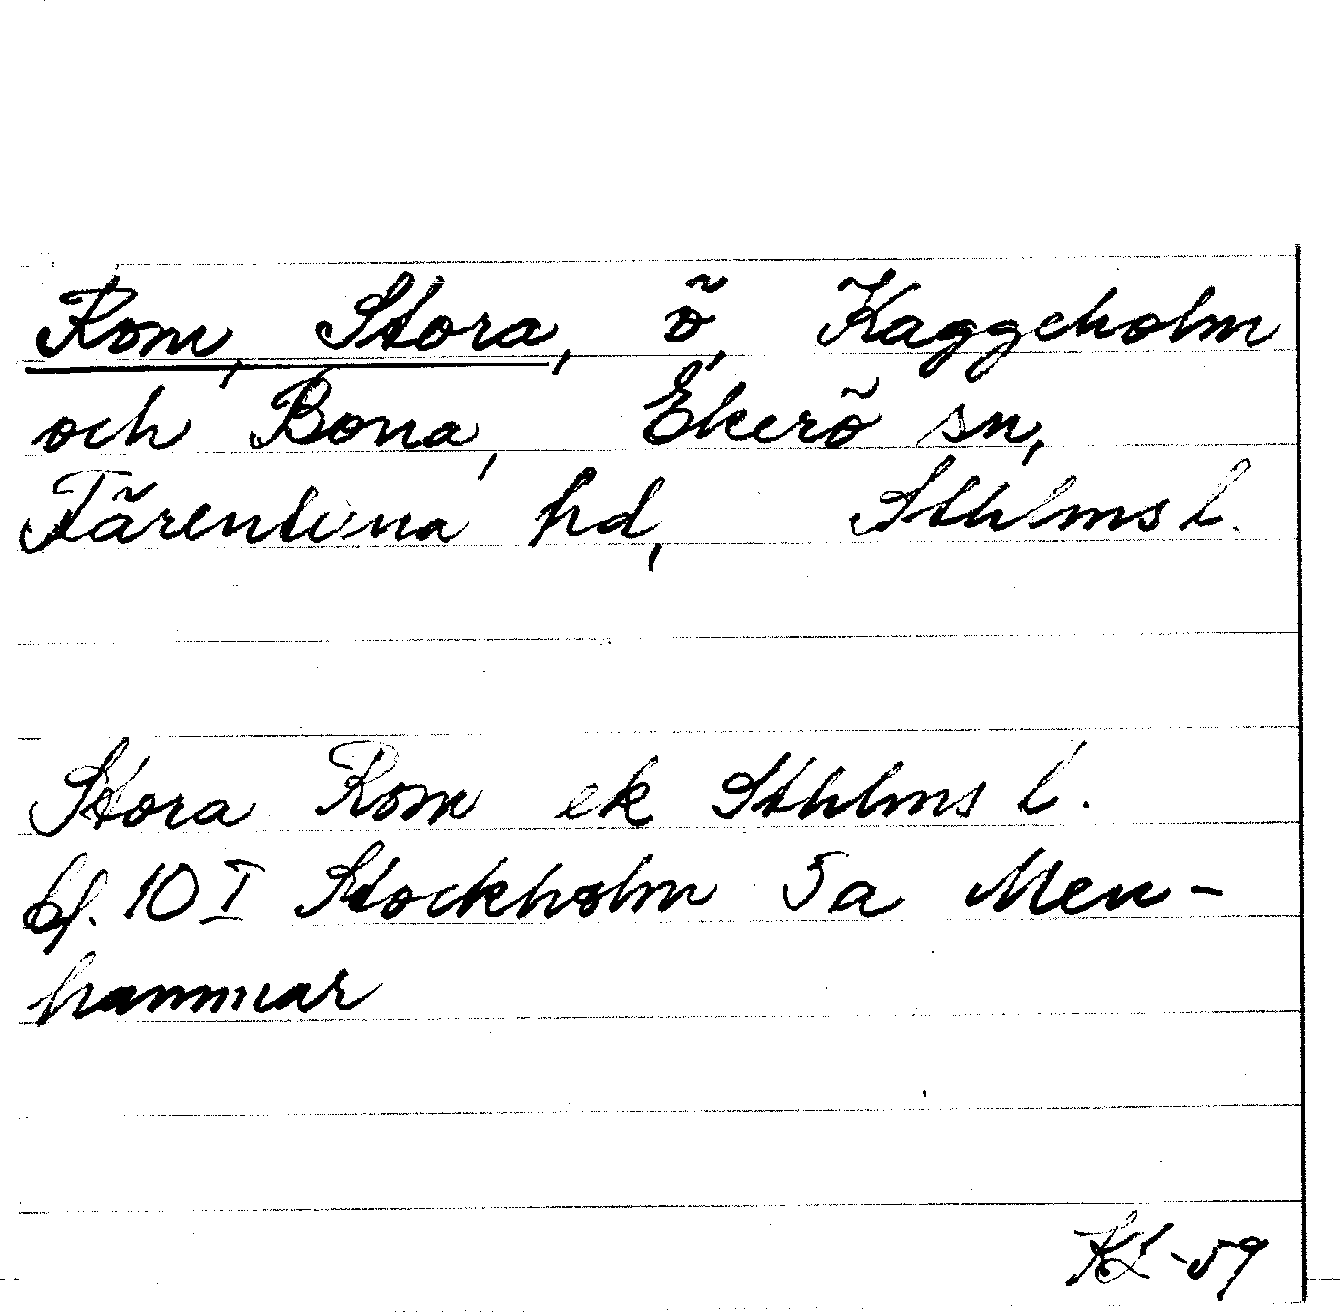 Rom, Stora, ö, Kaggeholm
och Bona, Ekerö sn,
Färentuna hd, Sthlms l.
Stora Rom ek Sthlms l.
bl. 10 I Stockholm 5a Men-
hammar
KL -59